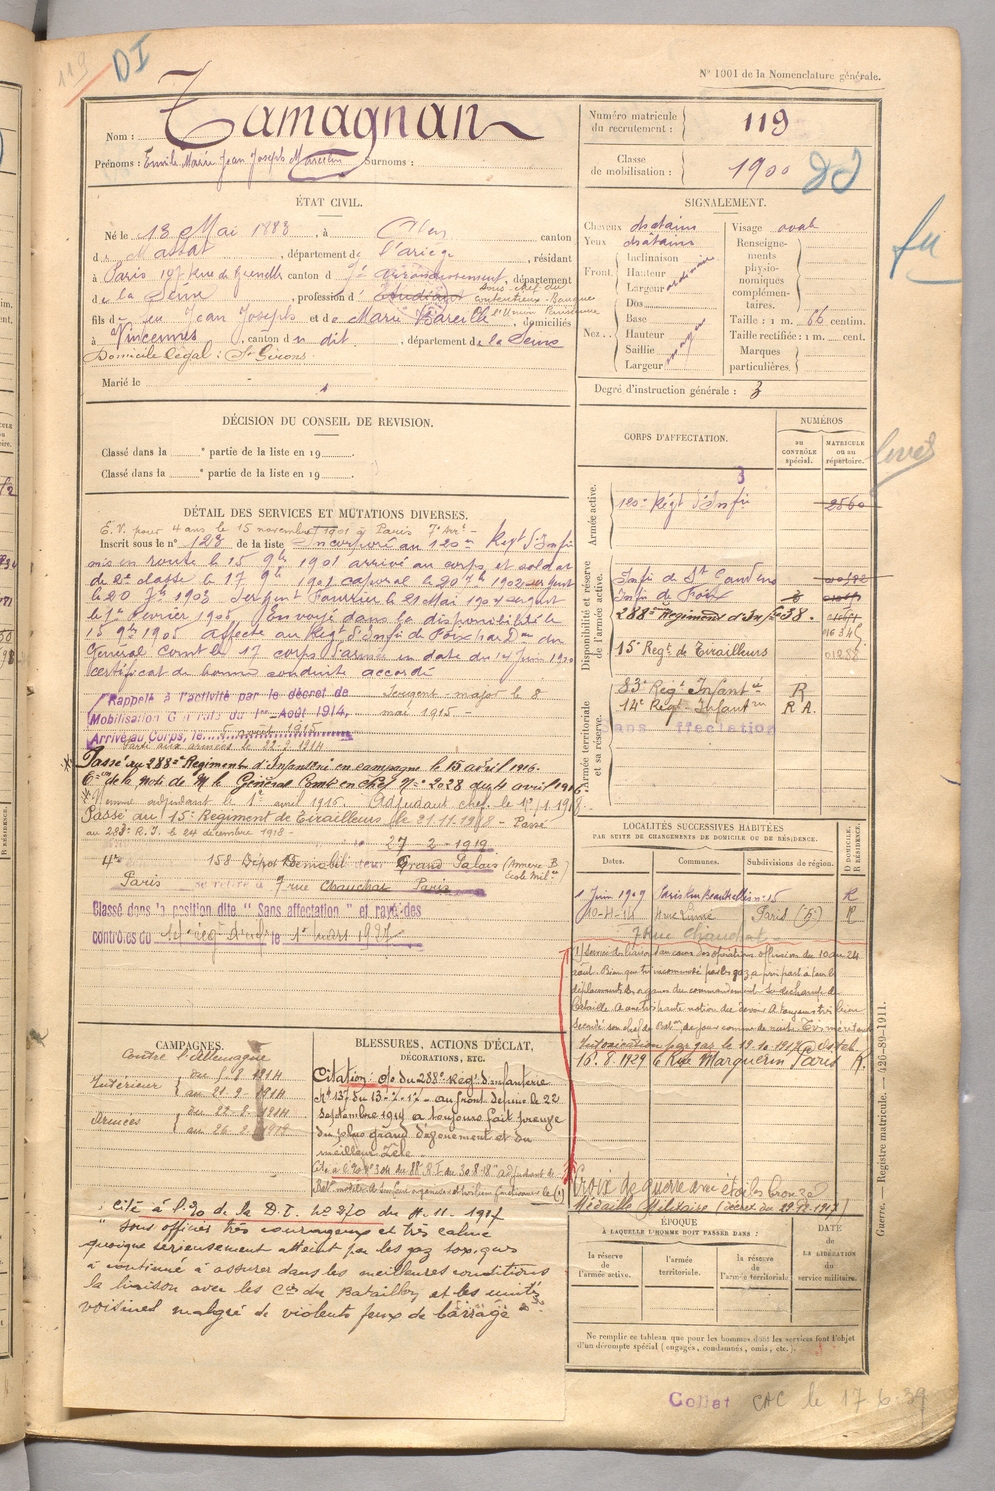 119 DI
N° 1001 de la Nomenclature générale.
Nom : Tamagnan
Prénoms : Emile Marie Jean Joseph Marcelin Surnoms :
Numéro matricule du recrutement : 119
Classe de mobilisation : 1900
ÉTAT CIVIL.
Né le 13 Mai 1883, à canton
de Massat, département de l'ariège, résidant
à Paris 197 Rue de Grenelle canton d 7e arrondissement, département
de la Seine, profession d' Etudiant sous chef du contentieux Banque
l'Union Parisienne
fils de feu Jean Joseph et de Marie Bareille, domiciliés
à Vincennes, canton du dit, département de la Seine
Domicile légal : St Girons
Marié le
SIGNALEMENT.
Cheveux chatains Visage oval
Yeux chatains
Front. Inclinaison Hauteur Largeur ordinaire
Nez. Dos Base Hauteur Saillie Largeur moyen
Renseignements physionomiques complémentaires.
Taille : 1 m. 66 centim.
Taille rectifiée : 1 m. cent.
Marques particulières.
Degré d'instruction générale : 3
DÉCISION DU CONSEIL DE REVISION.
Classé dans la e partie de la liste en 19
Classé dans la e partie de la liste en 19
CORPS D'AFFECTATION.
NUMÉROS
AU CONTRÔLE spécial. MATRICULE ou au répertoire.
Armée active.
3
120e Régt d'Infie 2560
Disponibilité et réserve de l'armée active.
Infie de St Gaudens
Infie de Foix
288e Régiment d'Infie 638.
15e Regt de Tirailleurs 01288
Armée territoriale et sa réserve.
83e Régt Infantie R
14e Régt Infantie R A.
Sans affectation
DÉTAIL DES SERVICES ET MUTATIONS DIVERSES.
E.V. pour 4 ans le 15 novembre 1901 à Paris 7e Arrt -
Inscrit sous le n° 128 de la liste Incorporé au 120e Regt d'Infie
mis en route le 15 9bre 1901 arrivé au corps et soldat
de 2e classe le 17 9bre 1901 caporal le 20 7bre 1902 sergent
le 20 7bre 1903 Sergent Fourrier le 21 Mai 1904 sergent
le 1er Fevrier 1905 Envoyé dans la disponibilité le
15 9bre 1905 affecté au Régt d'Infie de Foix par Don du
Général Comt le 17 corps d'armée en date du 14 Juin 1910
certificat de bonne conduite accordé
Rappelé à l'activité par le décret de
Mobilisation Générale du 1er Août 1914,
Arrivé au Corps, le
Sergent-major le 8
mai 1915 -
Parti aux armées le 22-9-1914
Passé au 288e Régiment d'Infanterie en campagne le 15 avril 1916.
Don de la note de M. le Général Comt en chef No 2028 du 4 avril 1916
Nommé adjudant le 1er avril 1916. Adjudant chef le 1er/1-1918.
Passé au 15e Régiment de Tirailleurs le 21.11.1918 - Passé
au 288e R.I. le 24 décembre 1918 -
le 27-2-1919
4e 158 Dépot Démobilisateur Grand Palais (Annexe B Ecole Milre)
Paris se retire à 7 rue Chauchat Paris
Classé dans la position dite "Sans affectation" et rayé des
contrôles du 14e régt d'inf le 1er mars 1927
LOCALITÉS SUCCESSIVES HABITÉES
PAR SUITE DE CHANGEMENTS DE DOMICILE OU DE RÉSIDENCE.
Dates. Communes. Subdivisions de région. D DOMICILE, R RÉSIDENCE
1 Juin 1907 Paris R
Paris (5) R
7 Rue Chauchat -
(1) Service de liaison au cours des opérations offensives du 10 au 24
août. Bien que très incommodé par les gaz, a pris part à tous les
déplacements des organes du commandement sur le champ de
bataille. A une très haute notion du devoir. A toujours très bien
secondé son chef de Baton, de jour comme de nuit. Très méritant
Intoxication par gaz le 19.10.1917
16.8.1929 6 Rue Marguerin Paris R.
CAMPAGNES.
Contre l'Allemagne
Intérieur du 5-8-1914 au 21-9-1914
Armées du 22-9-1914 au 26-2-1919
BLESSURES, ACTIONS D'ÉCLAT,
DÉCORATIONS, ETC.
Citation : o/o du 288e Régt d'infanterie
No 137 du 13-7-17 - au front depuis le 22
septembre 1914 a toujours fait preuve
du plus grand dévouement et du
meilleur zèle -
Cité à l'o No 304 du 88 R.I. du 30.8.18
cité à l'o/o de la D.I. No 270 du 11.11.1917
"Sous officier très courageux et très calme
quoique sérieusement atteint par les gaz toxiques
a continué à assurer dans les meilleures conditions
la liaison avec les Cies du Bataillon et les unités
voisines malgré de violents feux de barrage"
Croix de guerre avec étoiles bronze
Médaille Militaire (décret du 29.12.1917)
ÉPOQUE
À LAQUELLE L'HOMME DOIT PASSER DANS :
la réserve de l'armée active. l'armée territoriale. la réserve de l'armée territoriale.
DATE de LA LIBÉRATION du service militaire.
Ne remplir ce tableau que pour les hommes dont les services font l'objet
d'un décompte spécial (engagés, condamnés, omis, etc.).
Guerre. — Registre matricule. — 426-89-1911.
Collat CAC le 17-6-39